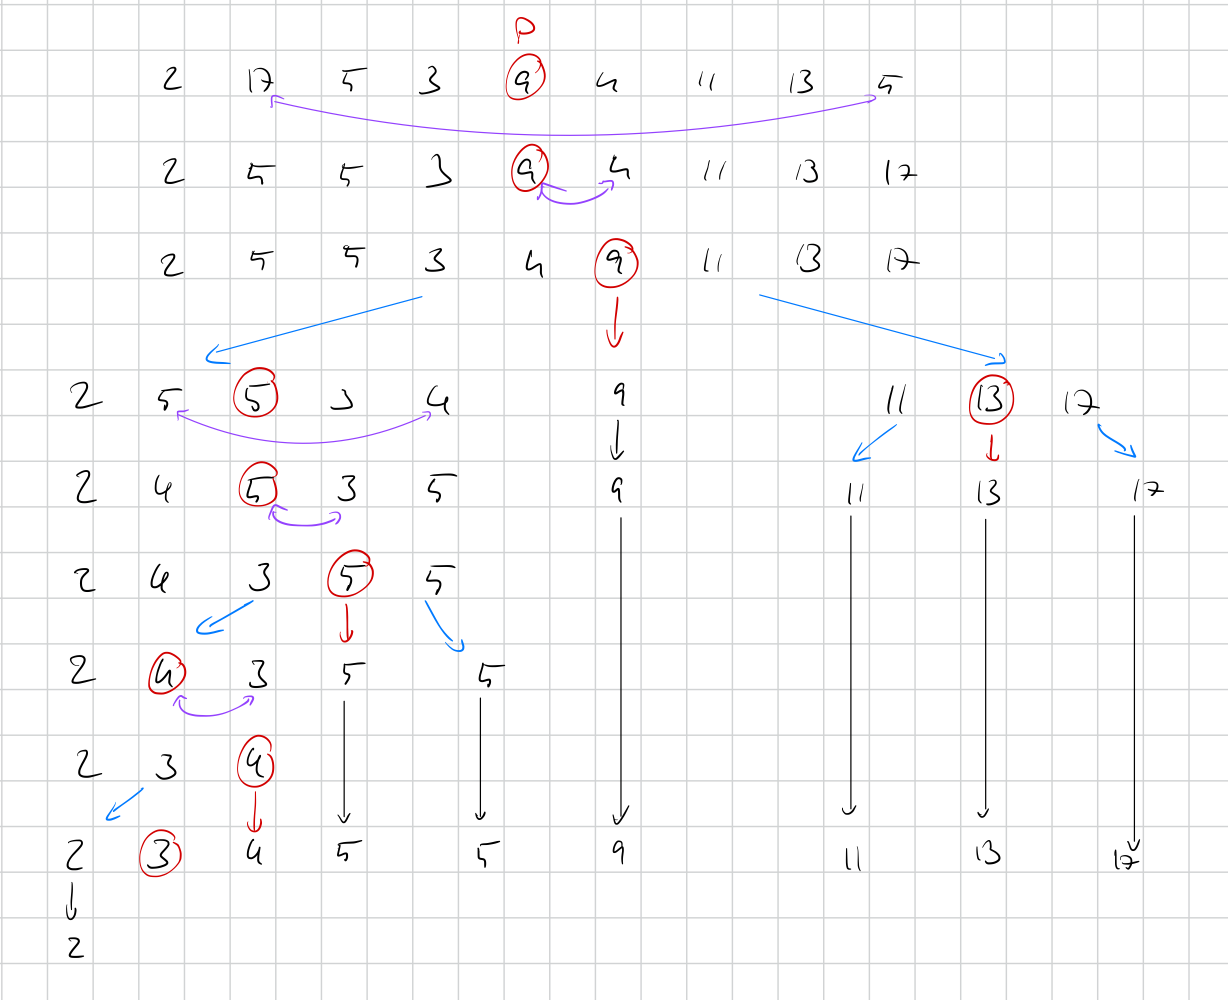 P
2 17 5 3 9 4 11 13 5
2 5 5 3 9 4 11 13 17
2 5 5 3 4 9 11 13 17
2 5 5 3 4 9 11 13 17
2 4 5 3 5 9 11 13 17
2 4 3 5 5
2 4 3 5 5
2 3 4
2 3 4 5 5 9 11 13 17
2